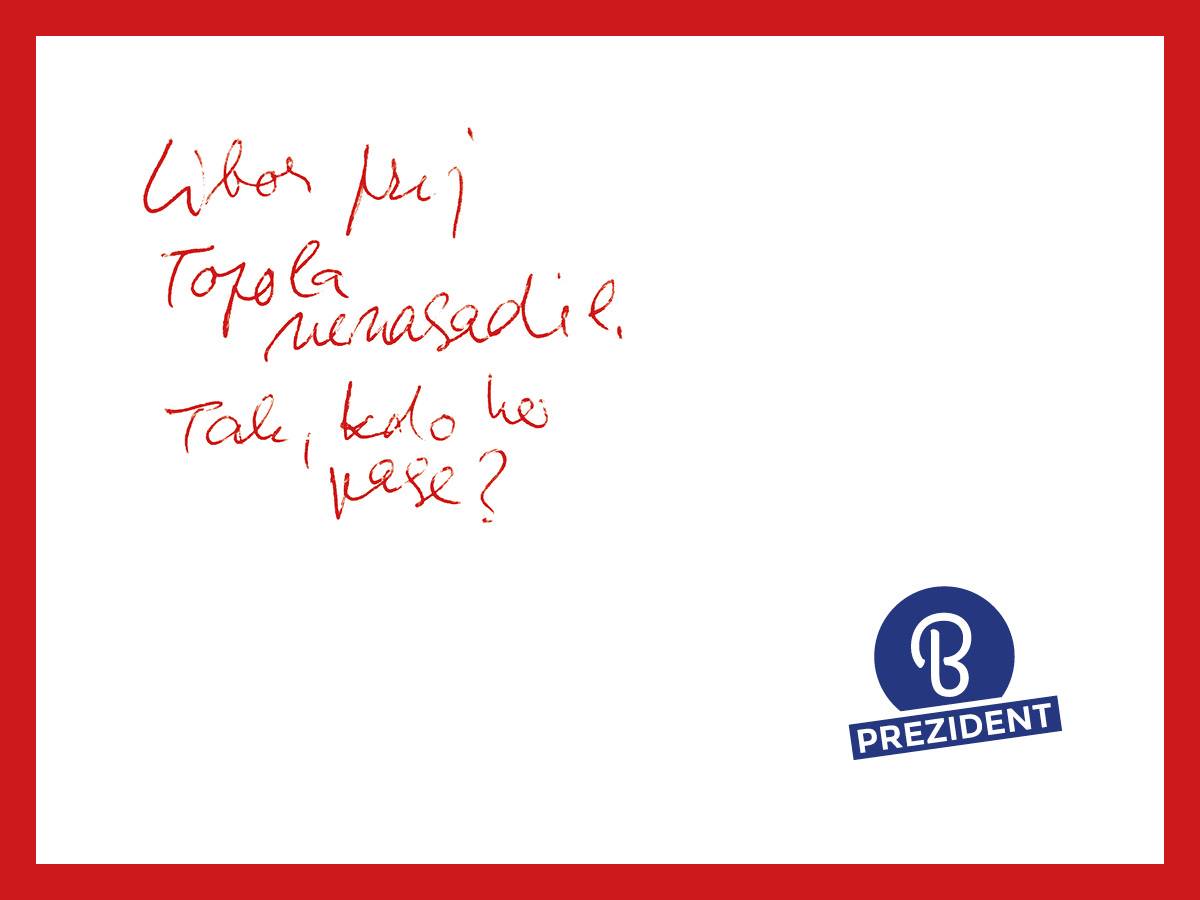 Libor prej
Topola
nenasadil.
Tak, kdo ho
pase?
B
PREZIDENT